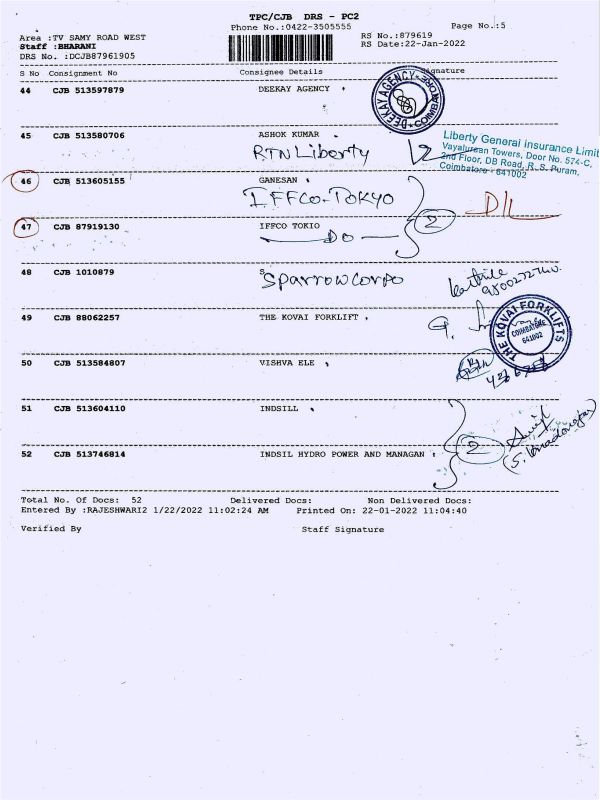 TPC/CJB DRS - PC2
Phone No.:0422-3505555
Page No.:5
Area :TV SAMY ROAD WEST
RS No.:879619
Staff :BHARANI
RS Date:22-Jan-2022
DRS No. :DCJB87961905
S No Consignment No Consignee Details Signature
44 CJB 513597879 DEEKAY AGENCY
DEEKAY AGENCY
45 CJB 513580706 ASHOK KUMAR
RTN Liberty
Liberty General insurance Limit
Vayalurean Towers, Door No. 574-C,
2nd Floor, DB Road, R. S. Puram,
Coimbatore - 641002
46 CJB 513605155 GANESAN
IFFCO-TOKYO
2
47 CJB 87919130 IFFCO TOKIO
DO
48 CJB 1010879 S
Sparrow Corpo
49 CJB 88062257 THE KOVAI FORKLIFT
G.
THE KOVAI FORKLIFTS
COIMBATORE
641002
50 CJB 513584807 VISHVA ELE
51 CJB 513604110 INDSILL
2
52 CJB 513746814 INDSIL HYDRO POWER AND MANAGAN
Total No. Of Docs: 52 Delivered Docs: Non Delivered Docs:
Entered By :RAJESHWARI2 1/22/2022 11:02:24 AM Printed On: 22-01-2022 11:04:40
Verified By Staff Signature